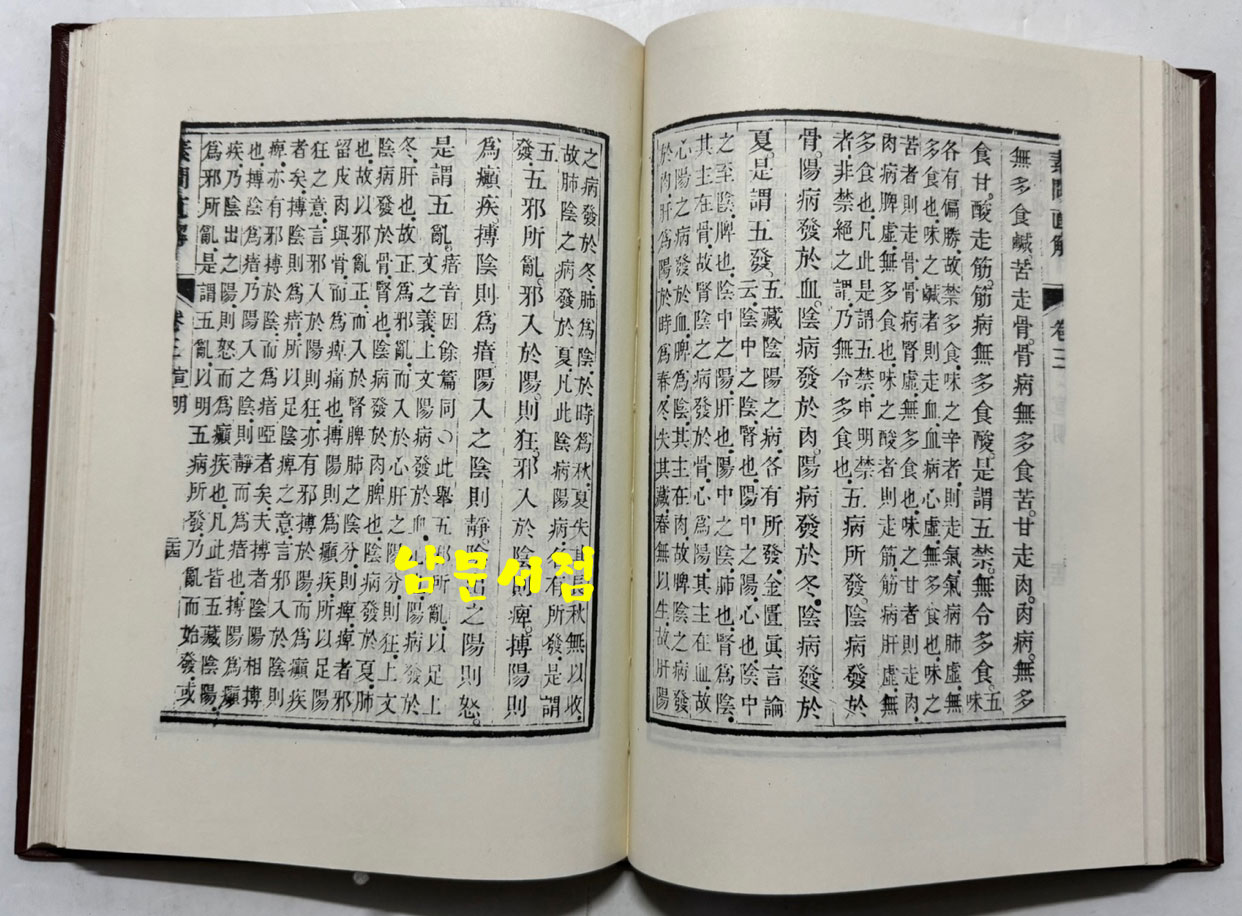 素問直解 卷三
無多食鹹。苦走骨。骨病無多食苦。甘走肉。肉病。無多
食甘。酸走筋。筋病無多食酸。是謂五禁。無令多食。五味
各有偏勝故禁多食.味之辛者.則走氣.氣病肺虛.無
多食也.味之鹹者則走血.血病心虛.無多食也.味之
苦者則走骨.骨病腎虛.無多食也.味之甘者則走肉.
肉病脾虛.無多食也.味之酸者則走筋.筋病肝虛.無
多食也.凡此是謂五禁.申明禁
者.非禁絕之謂.乃無令多食也.五病所發陰病發於
骨.陽病發於血.陰病發於肉.陽病發於冬.陰病發於
夏.是謂五發.五藏陰陽之病.各有所發.金匱眞言論
云.陰中之陰.腎也.陽中之陽.心也.陰中
之至陰.脾也.陰中之陽.肝也.陽中之陰.肺也.腎爲陰.
其主在骨.故腎陰之病發於骨.心爲陽.其主在血.故
心陽之病發於血.脾爲陰.其主在肉.故脾陰之病發
於肉.肝爲陽.於時爲春.冬失其藏.春無以生.故肝陽
之病發於冬.肺爲陰.於時爲秋.夏失其長.秋無以收.
故肺陰之病.發於夏.凡此陰病陽病.有所發.是謂
五發.五邪所亂.邪入於陽.則狂.邪入於陰.則痺.搏陽則
爲癲疾.搏陰則爲瘖.陽入之陰則靜.陰出之陽則怒.
是謂五亂.瘖音因餘篇同〇此舉五邪所亂.以足上
文之義.上文陽病發於血.陽病發於
冬.肝也.故正爲邪亂.而入於心肝之陽分.則狂.上文
陰病發於骨.腎也.陰病發於肉.脾也.陰病發於夏.肺
也.故以邪亂正.而入於腎脾肺之陰分.則痺.痺者邪
留皮肉與骨.而爲痺痛也.搏陽則爲癲疾.所以足陽
狂之意.言邪入於陽則狂.亦有邪搏於陽.而爲癲疾
者矣.搏陰則爲瘖.所以足陰痺之意.言邪入於陰則
痺.亦有邪搏於陰.而爲瘖啞者矣.夫搏者陰陽相搏
也.搏陰爲瘖.乃陽入之陰.則靜而爲瘖也.搏陽爲癲
疾.乃陰出之陽.則怒而爲癲疾也.凡此皆五藏陰陽
爲邪所亂.是謂五亂.以明五病所發.乃亂而始發.或
素問直解 卷三宣明
남문서점